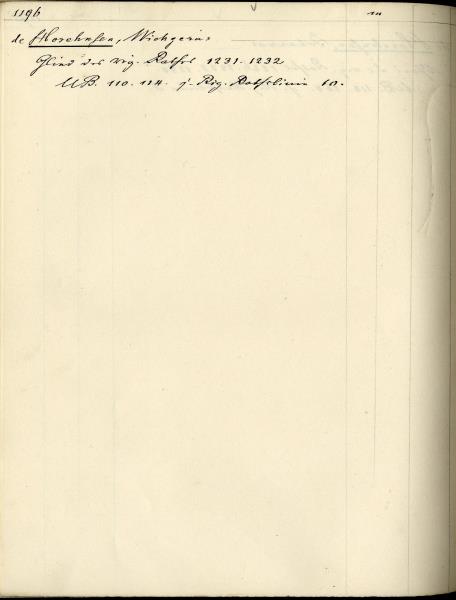 1196
de Horehusen, Wichgerus
Glied des rig. Rathes 1231-1232
UB. 110. 114. j. Rig. Rathslinie 10.